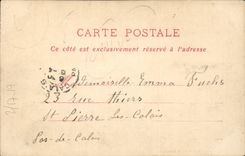 CARTE POSTALE
Ce côté est exclusivement réservé à l'adresse
Mademoiselle Emma Fuchs
23 rue Thiers
St Pierre les Calais
Pas-de-Calais